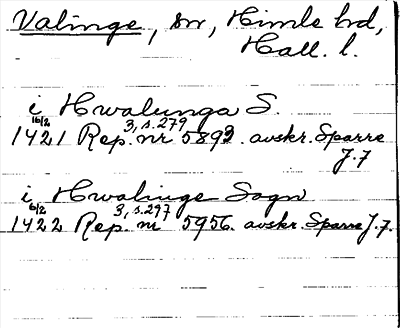 Valinge, sn, Himle hd,
Hall. l.
i Hwalunga S.
16/2 3, s. 279
1421 Rep. nr 5893. avskr. Sparre
J. 7
i Hwalinge Sogn
6/2 3, s. 297
1422 Rep. nr 5956. avskr. Sparre J. 7.